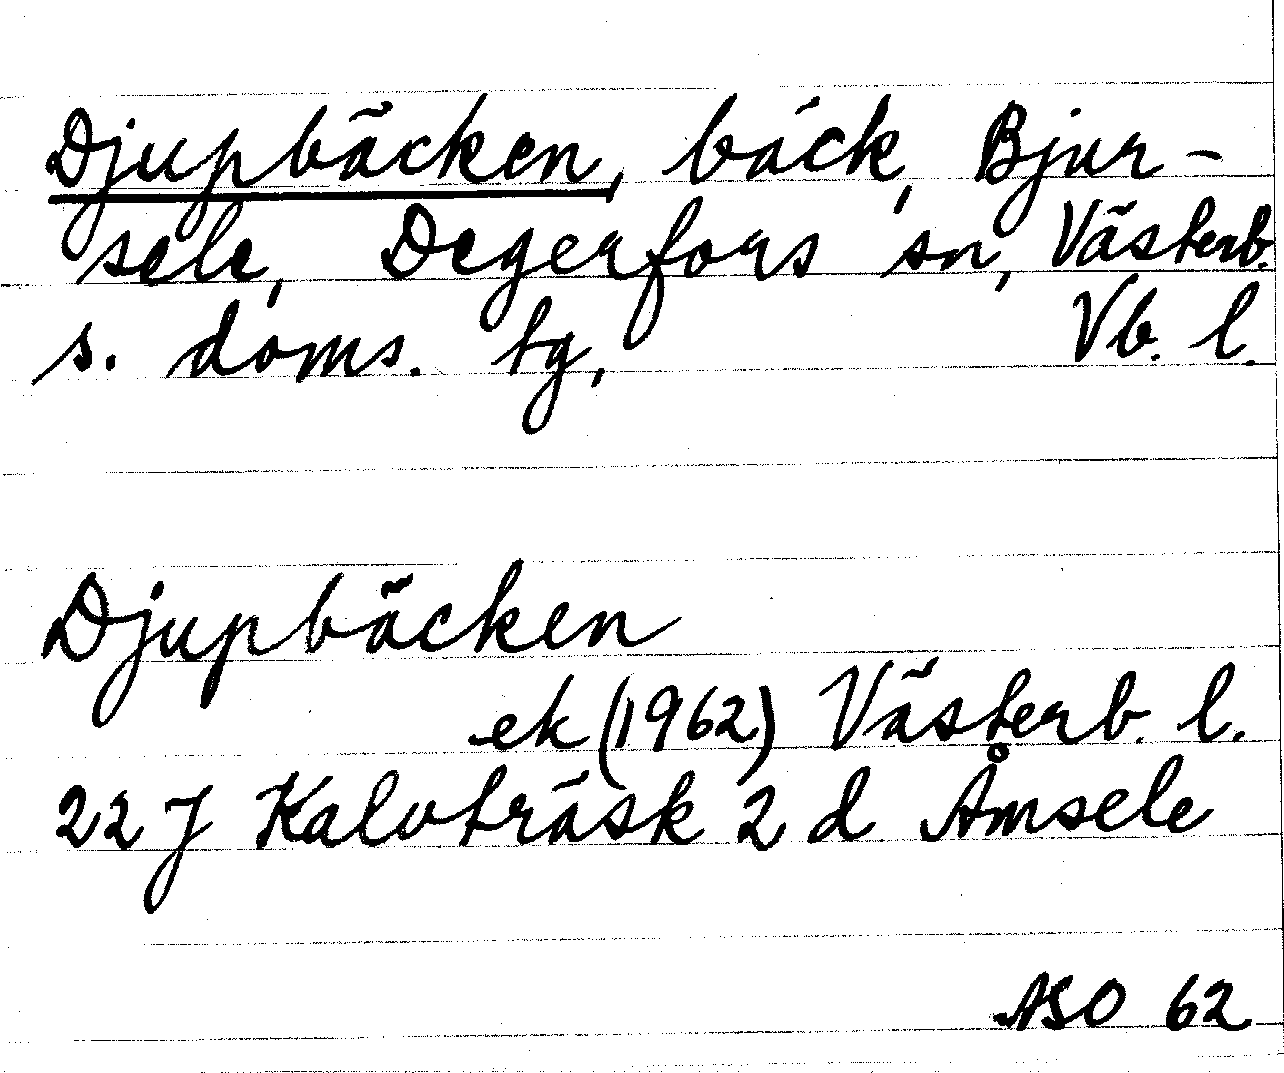 Djupbäcken, bäck, Bjur-
sele, Degerfors sn, Västerb.
s. doms. tg, Vb. l.
Djupbäcken
ek (1962) Västerb. l.
22 J Kalvträsk 2 d Åmsele
NSO 62